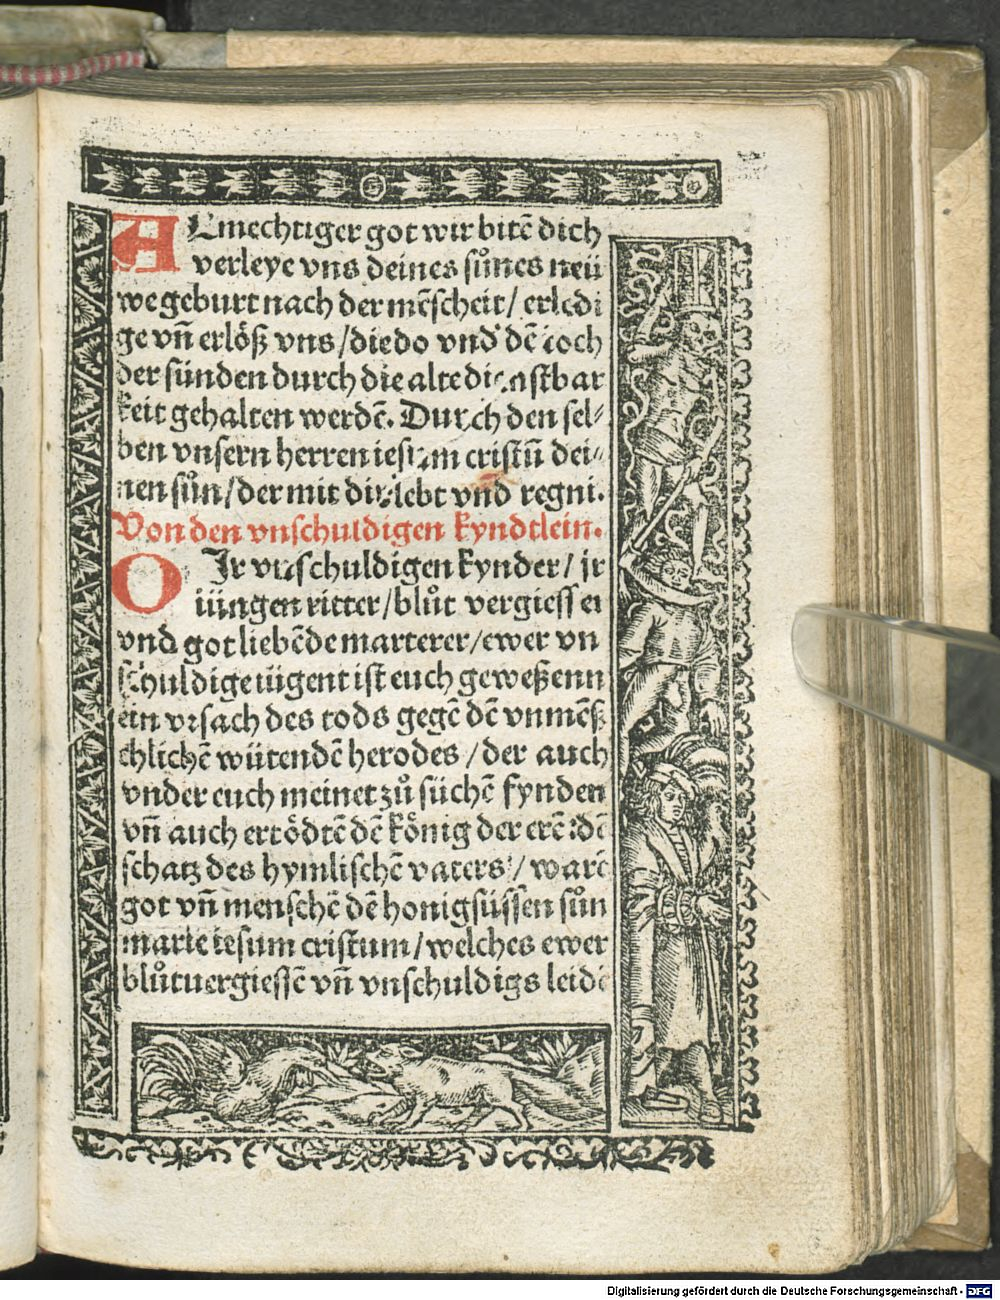 ALmechtiger got wir bitē dich
verleye vns deines sůnes neü
we geburt nach der mēscheit/ erledi
ge vn̄ erlöß vns/die do vnd̕ dē ioch
der sünden durch die alte dienstbar
keit gehalten werdē. Durch den sel⸗
ben vnsern herren iesum cristū dei⸗
nen sůn/der mit dir lebt vnd regni.
Von den vnschuldigen kyndtlein.
O Jr vnschuldigen kynder/ jr
iüngen ritter/blůt vergiessēt
vnd got liebēde marterer/ewer vn
schuldige iügent ist euch geweßenn
ein vrsach des tods gegē dē vnmēß
chlichē wütendē herodes /der auch
vnder euch meinet zů süchē fynden
vn̄ auch ertödtē dē könig der erē :dē
schatz des hymlischē vaters / warē
got vn̄ menschē dē honigsüssen sůn
marie iesum cristum/welches ewer
blůtuergiessē vn̄ vnschuldigs leidē
Digitalisierung gefördert durch die Deutsche Forschungsgemeinschaft - DFG